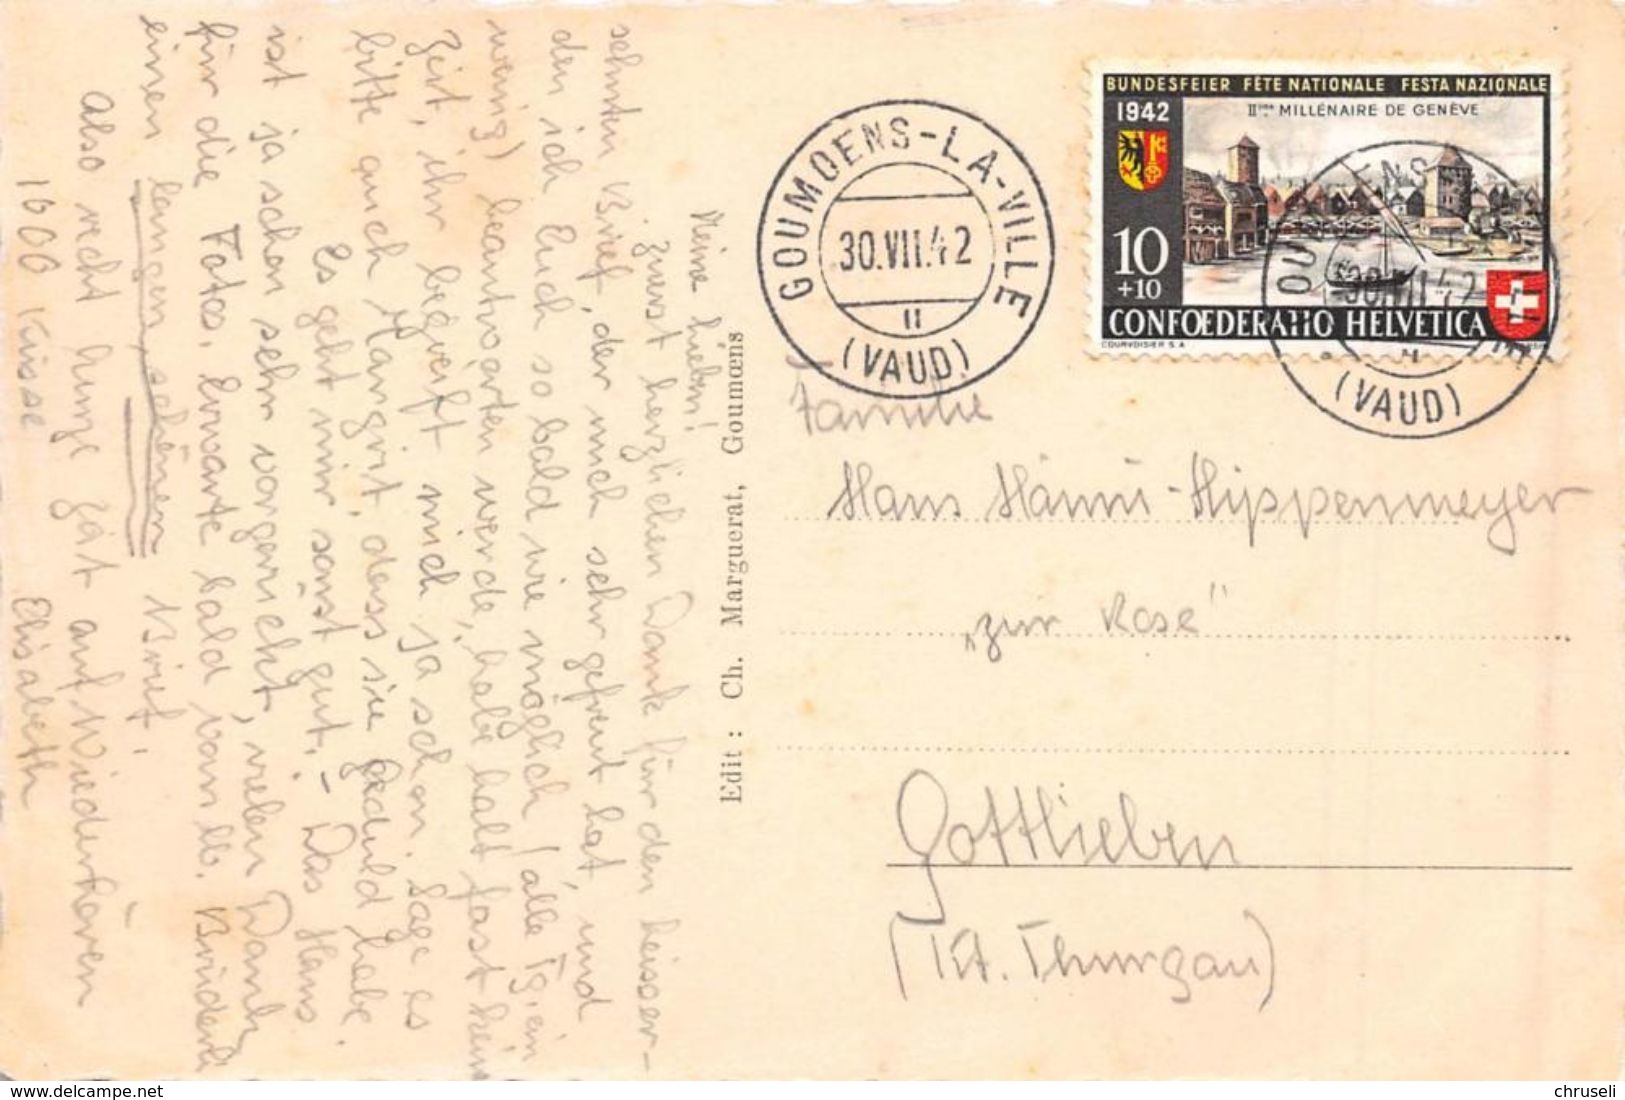 Meine lieben!
Zuerst herzlichen Dank für den heisser-
sehnten Brief, der mich sehr gefreut hat, und
den ich Euch so bald wie möglich (alle Tg ein
wenig) beantworten werde, habe halt fast kein
Zeit, ihr begreift mich ja schon. Sage es
bitte auch Mangrit, dass sie Geduld habe.
Es geht mir sonst gut. – Das Hans
ist ja schon sehr vorgerückt, vielen Dank
für die Fotos. Erwarte bald vom lb. Bruderli
einen langen, schönen Brief.
Also recht hurze Zät auf Wiederhören
1000 Küsse Elisabeth
Edit : Ch. Marguerat, Goumœns
GOUMOENS-LA-VILLE
30.VII.42
II
(VAUD)
BUNDESFEIER FÊTE NATIONALE FESTA NAZIONALE
1942
IIme MILLÉNAIRE DE GENÈVE
10
+10
CONFOEDERATIO HELVETICA
COURVOISIER S.A.
30.VII.42
(VAUD)
Familie
Hans Hänni-Hippenmeyer
„zur Rose"
Gottlieben
(Kt. Thurgau)
chruseli